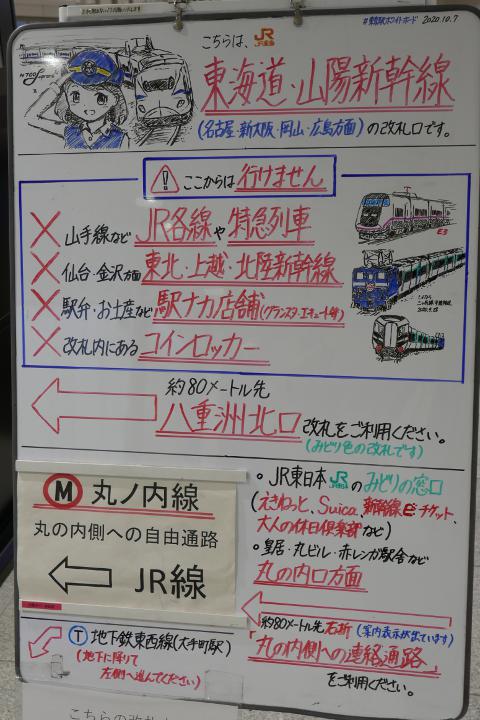 #東京駅ホワイトボード 2020.10.7
こちらは、JR
東海道・山陽新幹線
(名古屋・新大阪・岡山・広島方面)の改札口です。
N700 Supreme
ここからは行けません
× 山手線など JR各線や特急列車
× 仙台・金沢方面 東北・上越・北陸新幹線
× 駅弁・お土産など 駅ナカ店舗(グランスタ・エキュート等)
× 改札内にある コインロッカー
E3
約80メートル先
八重洲北口 改札をご利用ください。
(みどり色の改札です)
M 丸ノ内線
丸の内側への自由通路
JR線
・JR東日本 JRのみどりの窓口
(えきねっと、Suica、新幹線eチケット、
大人の休日倶楽部など)
・皇居・丸ビル・赤レンガ駅舎など
丸の内口方面
約80メートル先右折(案内表示が出ています)
「丸の内側への連絡通路」
をご利用ください。
T 地下鉄東西線(大手町駅)
(地下に降りて
左側へ進んでください)